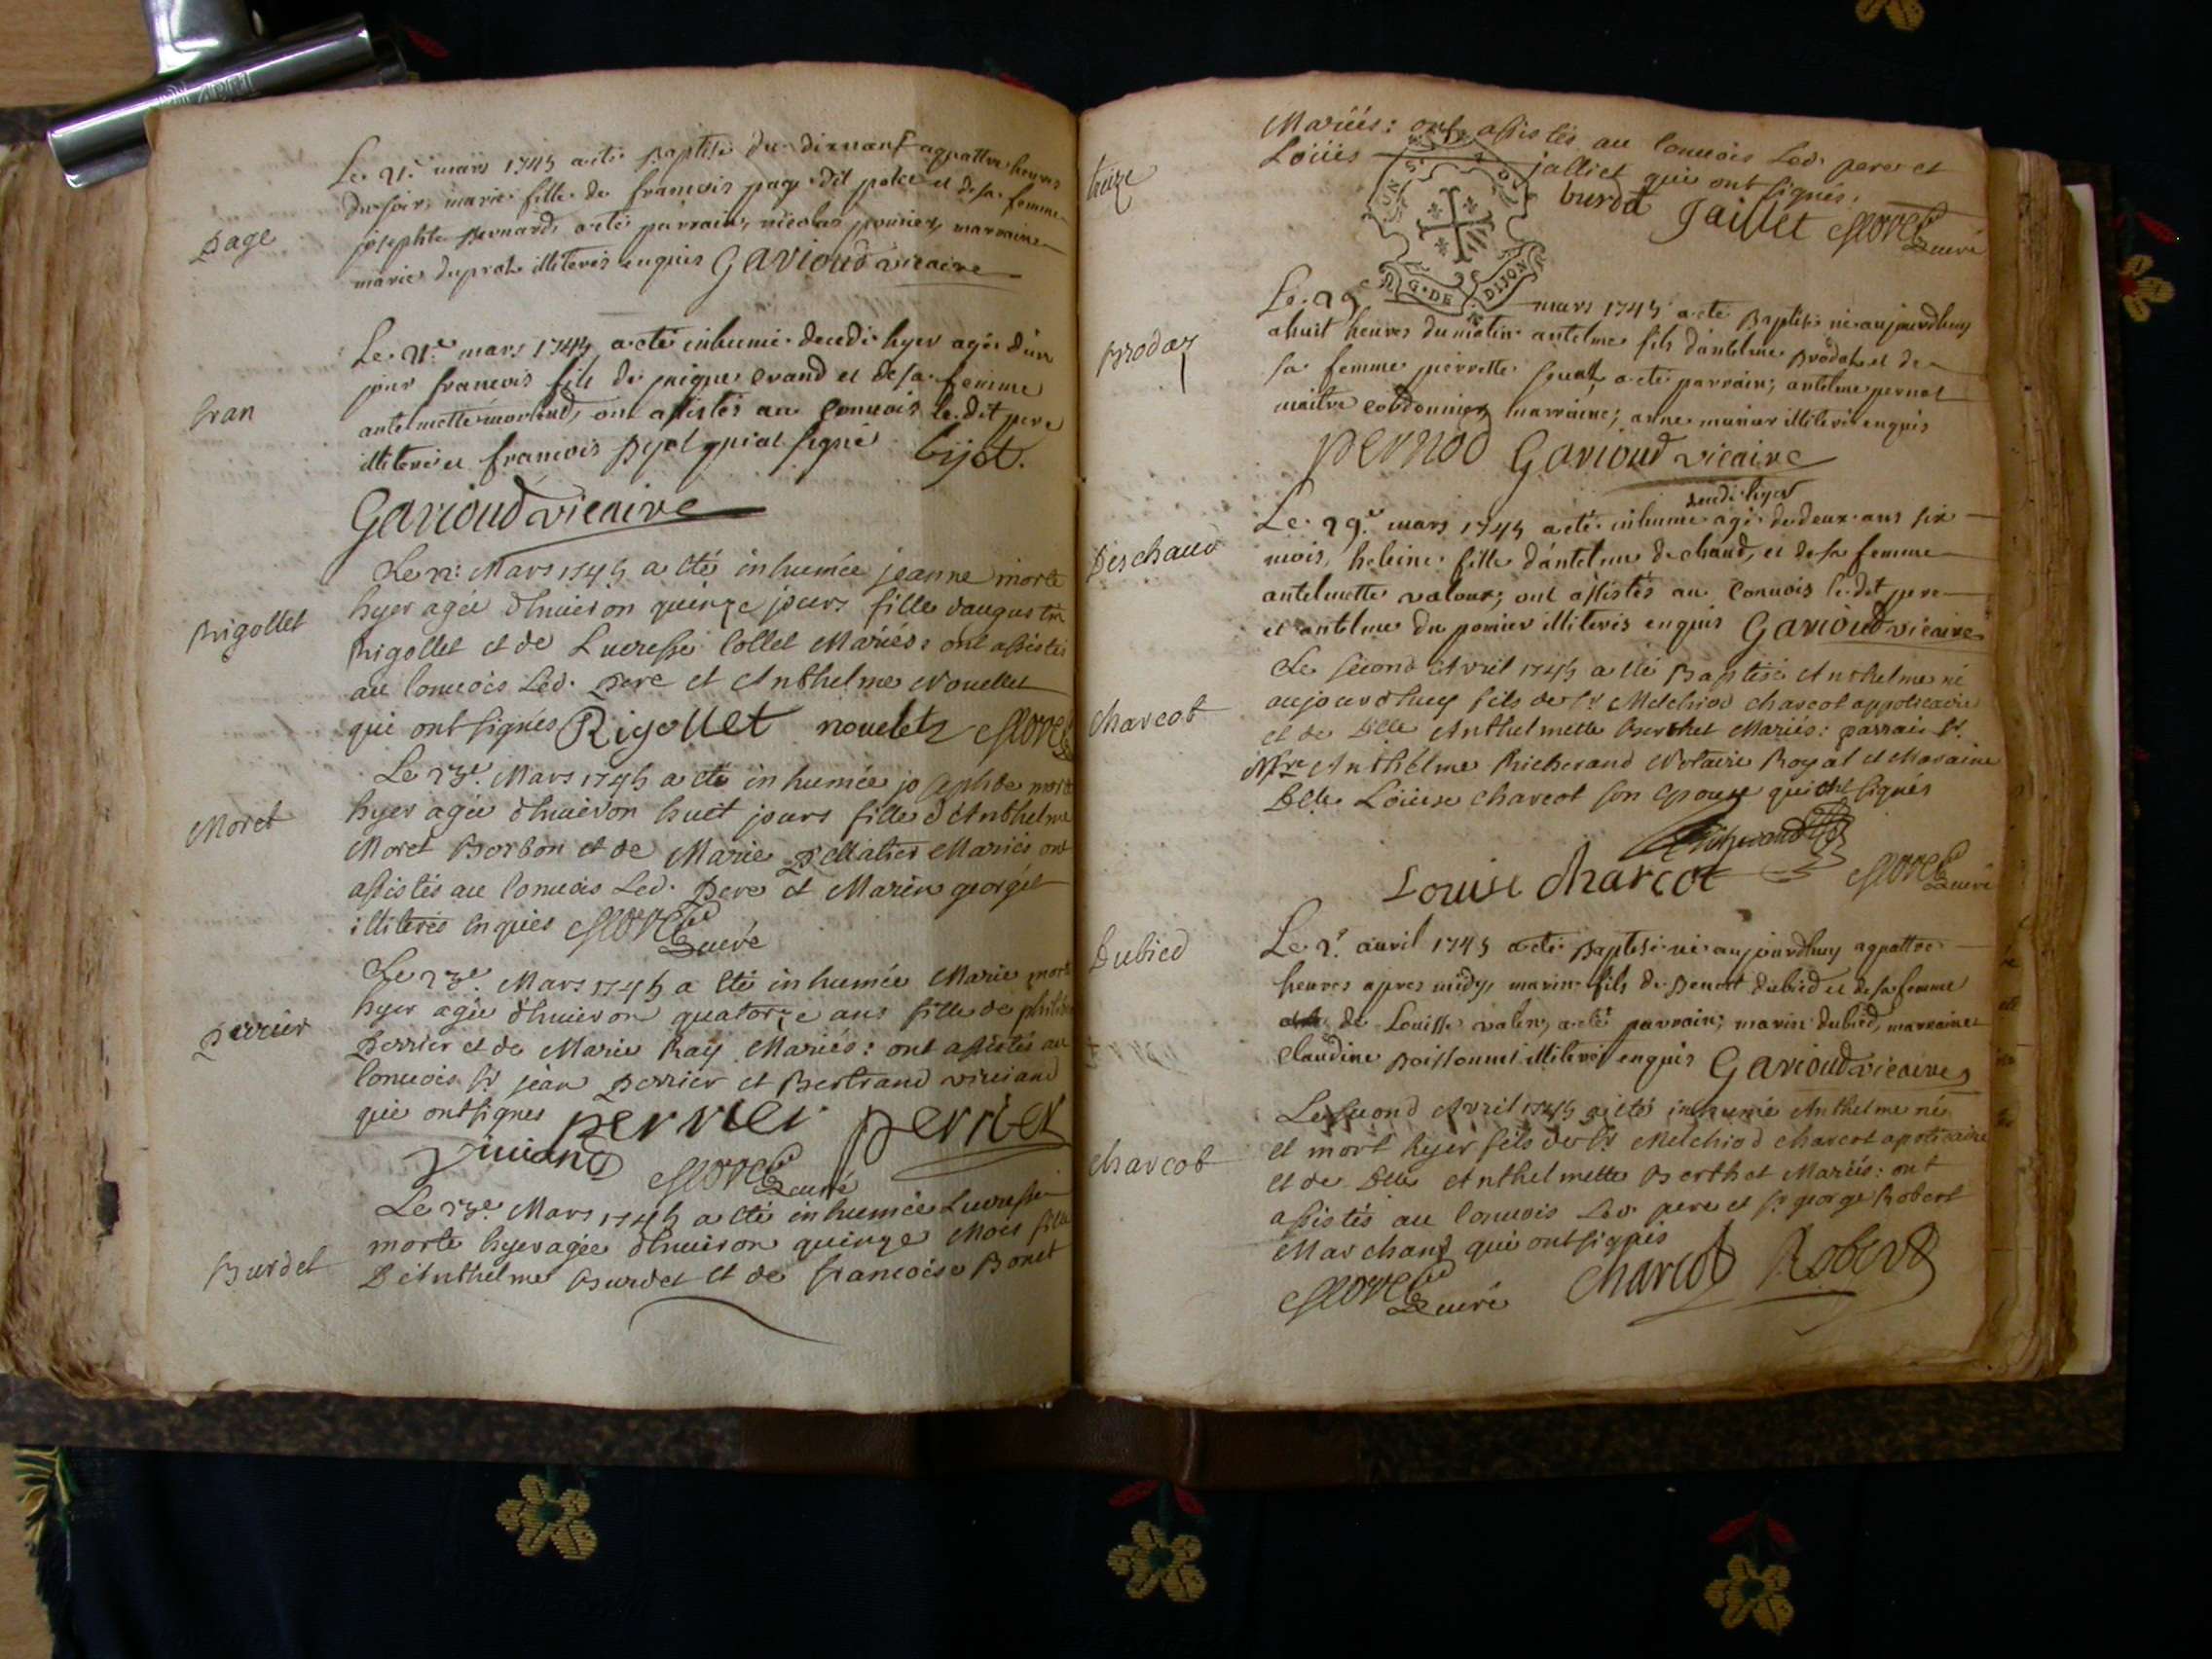 page
Le 21.e mars 1745 a été baptisé du dixneuf a quattre heures
du soir, marie fille de francois page dit police et de sa femme
josephte bernard, a été parrain, nicolas pomier, marraine
marie duprat illiterés enquis Garioud vicaire
Cran
Le 21.e mars 1745 a été inhumé decedé hyer agé d'un
jour francois fils de pierre Crand et de sa femme
antelmette morland, ont assistés au Convois le dit pere
illiteré et francois Byot qui at signé bijot.
Garioud vicaire
Rigollet
Le 22: Mars 1745 a eté inhumée jeanne morte
hyer agée d'huieron quinze jours fille d'augustin
Rigollet et de Lucresse Collet Mariés: ont assistés
au Conuois Led. Pere et Anthelme Nouellet
qui ont signés Rigollet nouelets
Moret
Le 23.e Mars 1745 a eté inhumée josephte morte
hyer agée d'huieron huit jours fille d'Anthelme
Moret Borbon et de Marie Pellatier Mariés ont
assistés au Conuois Led. Pere et Marin georget
illiterés enquis curé
Perrier
Le 23.e Mars 1745 a eté inhumée Marie morte
hyer agée d'huieron quatorze ans fille de
Perrier et de Marie Ray Mariés: ont assistés au
Conuois Sr jean Perrier et Bertrand viuiand
qui ont signés perrier perrier
viuiand curé
Burdet
Le 23.e Mars 1745 a eté inhumée Lucresse
morte hyer agée d'huieron quinze Mois fille
D'Anthelme Burdet et de francoise Bonet
treize
Mariés: ont assistés au Conuois Led. pere et
Loüis jalliet qui ont signés.
burdet Jaillet curé
G. DE DIJON
Brodaz
Le 29.e mars 1745 a été Baptisé né aujourdhuy
a huit heures du matin antelme fils d'antelme Brodaz et de
sa femme perrette a été parrain; antelme pernod
maitre cordonnier, marraine; anne illiterée enquis
pernod Garioud vicaire
Deschaud
decedé hyer
Le 29.e mars 1745 a été inhumé agé de deux ans six
mois, heleine fille d'antelme dechaud, et de sa femme
antelmette valour; ont assistés au Convois le dit pere
et antelme du pomier illiterés enquis Garioud vicaire
Charcot
Le second Avril 1745 a eté Baptisé Anthelme né
aujourdhuy fils de Sr Melchiod Charcot appoticaire
et de Delle Anthelmette Berthet Mariés: parrain Sr.
Mre Anthelme Richerand Notaire Royal et Maraine
Delle Loüise Charcot son epouse qui ont signés
Richerand
Louise Charcot curé
Dubied
Le 2.e auril 1745 a été Baptisé né aujourdhuy a quattre
heures apres midy, marin fils de Benoit dubied et de sa femme
de Louisse valin, a été parrain; marin dubied, marraine
Claudine Boissonnet illiterés enquis Garioud vicaire
Charcot
Le second Avril 1745 a eté inhumé Anthelme né
et mort hyer fils de Sr Melchiod Charcot apoticaire
et de Delle Anthelmette Berthet Mariés: ont
assistés au Conuois Led. pere et Sr george Robert
Marchand qui ont signés
curé Charcot Robert